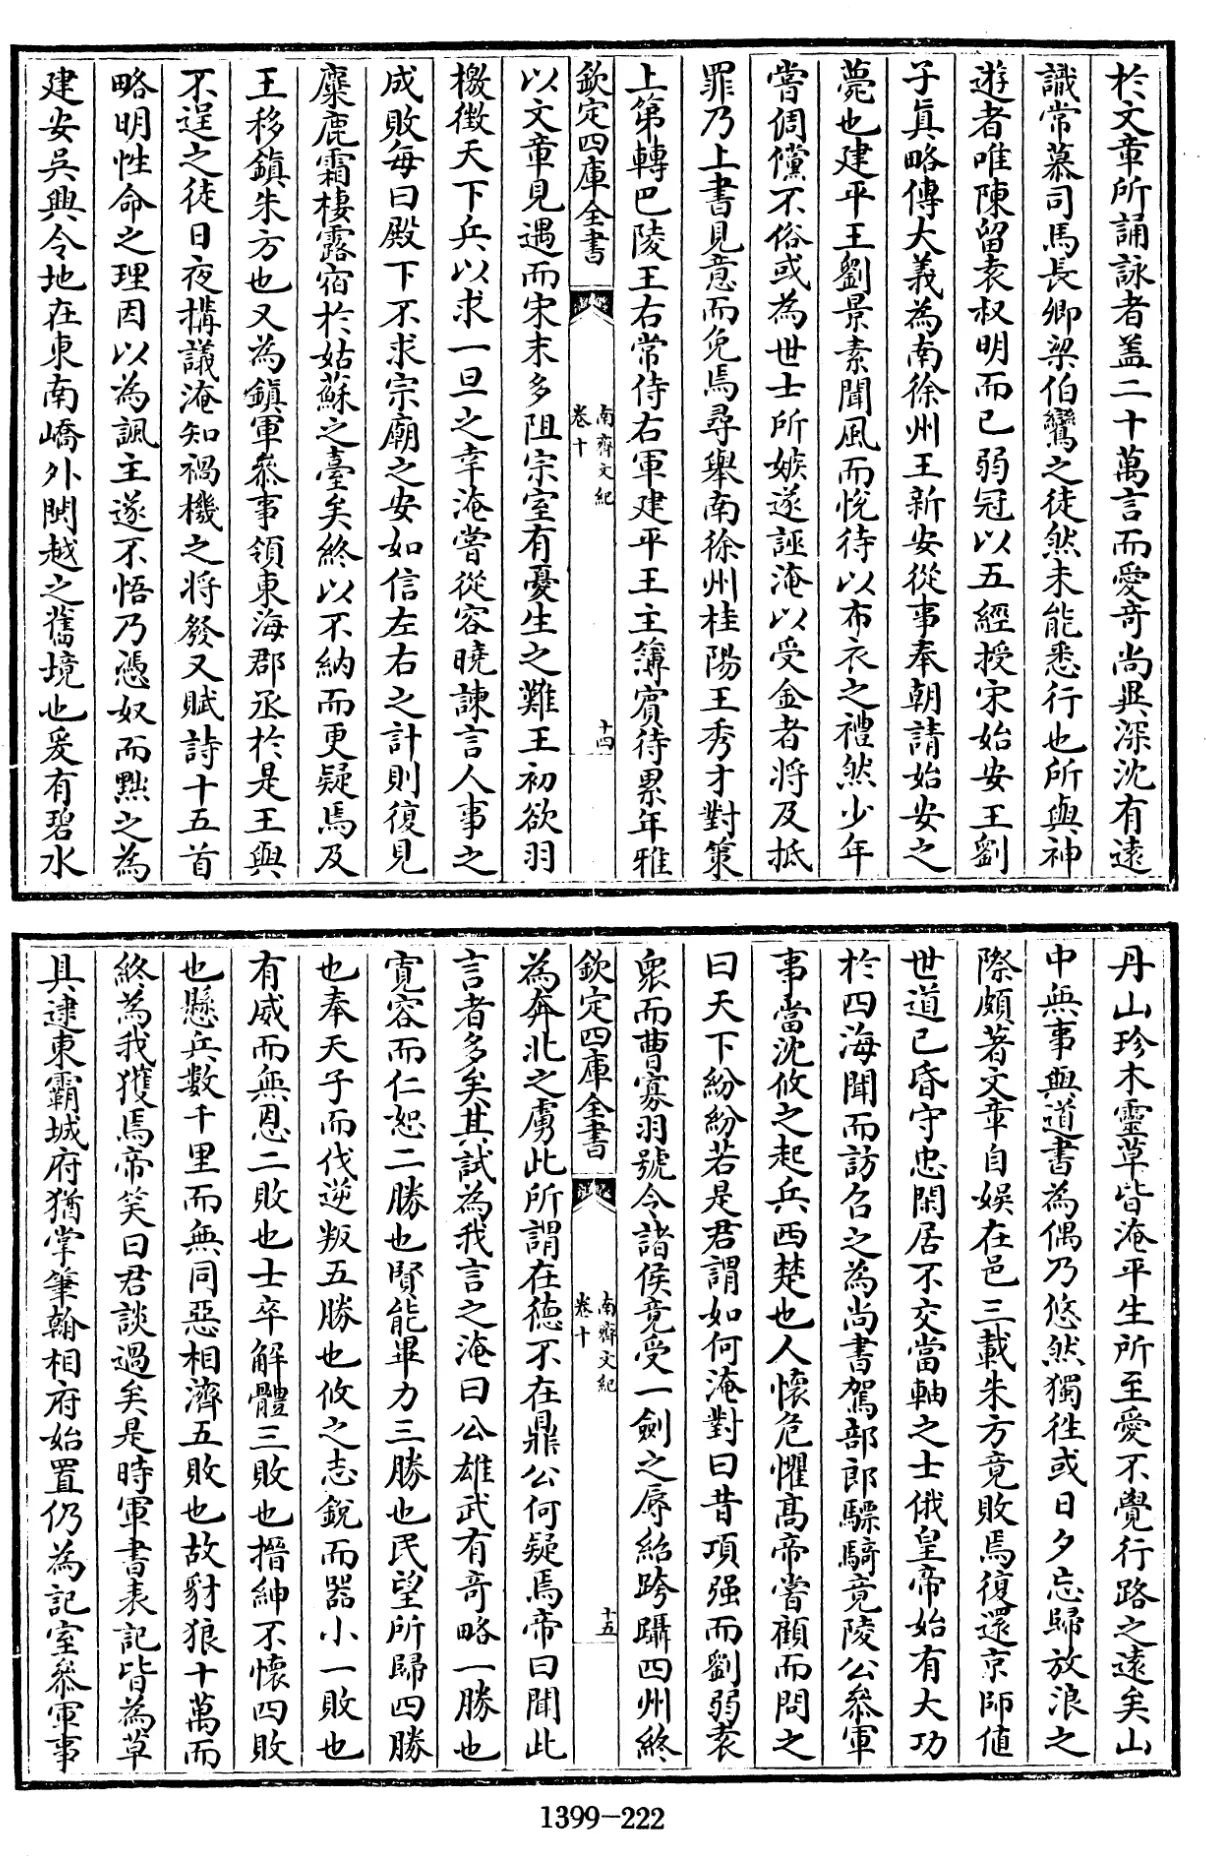 於文章所誦詠者盖二十萬言而愛奇尚異深沈有遠
識常慕司馬長卿梁伯鸞之徒然未能悉行也所與神
遊者唯陳留袁叔明而已弱冠以五經授宋始安王劉
子真略傳大義為南徐州王新安從事奉朝請始安之
薨也建平王劉景素聞風而悅待以布衣之禮然少年
嘗倜儻不俗或為世士所嫉遂誣淹以受金者將及抵
罪乃上書見意而免焉尋舉南徐州桂陽王秀才對策
上第轉巴陵王右常侍右軍建平王主簿賓待累年雅
欽定四庫全書
南齊文紀
卷十
十四
以文章見遇而宋末多阻宗室有憂生之難王初欲羽
檄徵天下兵以求一旦之幸淹嘗從容曉諫言人事之
成敗每曰殿下不求宗廟之安如信左右之計則復見
麋鹿霜棲露宿於姑蘇之臺矣終以不納而更疑焉及
王移鎮朱方也又為鎮軍叅事領東海郡丞於是王與
不逞之徒日夜搆議淹知禍機之將發又賦詩十五首
略明性命之理因以為諷主遂不悟乃憑奴而黜之為
建安吳興令地在東南嶠外閩越之舊境也爰有碧水
丹山珍木靈草皆淹平生所至愛不覺行路之遠矣山
中無事與道書為偶乃悠然獨徃或日夕忘歸放浪之
際頗著文章自娛在邑三載朱方竟敗焉復還京師值
世道已昏守忠閑居不交當軸之士俄皇帝始有大功
於四海聞而訪召之為尚書駕部郎驃騎竟陵公叅軍
事當沈攸之起兵西楚也人懷危懼高帝嘗顧而問之
曰天下紛紛若是君謂如何淹對曰昔項强而劉弱袁
衆而曹寡羽號令諸侯竟受一劍之辱紹跨躡四州終
欽定四庫全書
南齊文紀
卷十
十五
為奔北之虜此所謂在德不在鼎公何疑焉帝曰聞此
言者多矣其試為我言之淹曰公雄武有奇略一勝也
寛容而仁恕二勝也賢能畢力三勝也民望所歸四勝
也奉天子而伐逆叛五勝也攸之志銳而器小一敗也
有威而無恩二敗也士卒解體三敗也搢紳不懷四敗
也懸兵數千里而無同惡相濟五敗也故豺狼十萬而
終為我獲焉帝笑曰君談過矣是時軍書表記皆為草
具逮東霸城府猶掌筆翰相府始置仍為記室叅軍事
1399-222